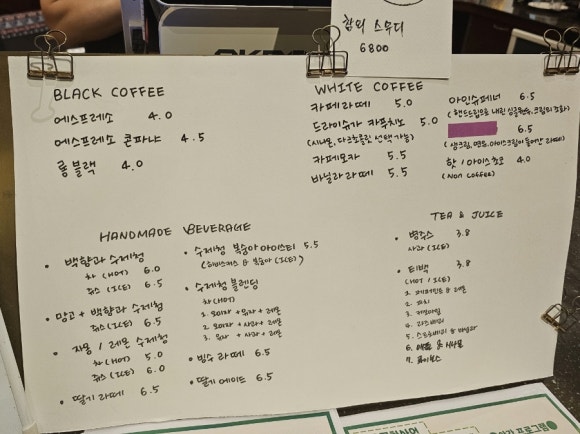 참외 스무디
6800
BLACK COFFEE
에스프레소 4.0
에스프레소 콘파냐 4.5
롱블랙 4.0
WHITE COFFEE
카페라떼 5.0
드라이슈가 카푸치노 5.0
(시나몬, 다크초콜릿 선택 가능)
카페모카 5.5
바닐라 라떼 5.5
아인슈페너 6.5
(핸드드립으로 내린 싱글원두, 크림의 조화)
6.5
(생크림, 면도, 아이스크림이 들어간 라떼)
핫 / 아이스 초코 4.0
(NON COFFEE)
HANDMADE BEVERAGE
• 백향과 수제청
차 (HOT) 6.0
쥬스 (ICE) 6.5
• 망고 + 백향과 수제청
쥬스 (ICE) 6.5
• 자몽 / 레몬 수제청
차 (HOT) 5.0
쥬스 (ICE) 6.0
• 딸기 라떼 6.5
• 수제청 복숭아 아이스티 5.5
(히비스커스 & 복숭아 (ICE))
• 수제청 블렌딩
차 (HOT)
1. 오미자 + 유자 + 레몬
2. 오미자 + 사과 + 레몬
3. 유자 + 사과 + 레몬
• 빙수 라떼 6.5
• 딸기 에이드 6.5
TEA & JUICE
• 병주스 3.8
사과 (ICE)
• 티백 3.8
(HOT / ICE)
1. 페퍼민트 & 레몬
2. 피치
3. 카모마일
4. 라즈베리
5. 스트로베리 & 바닐라
6.
7. 루이보스